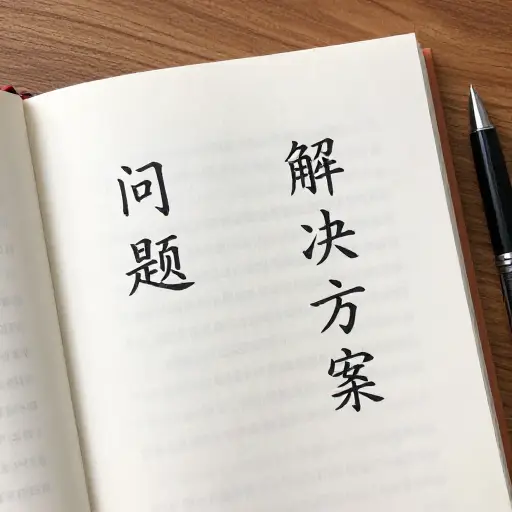 问题
解决方案